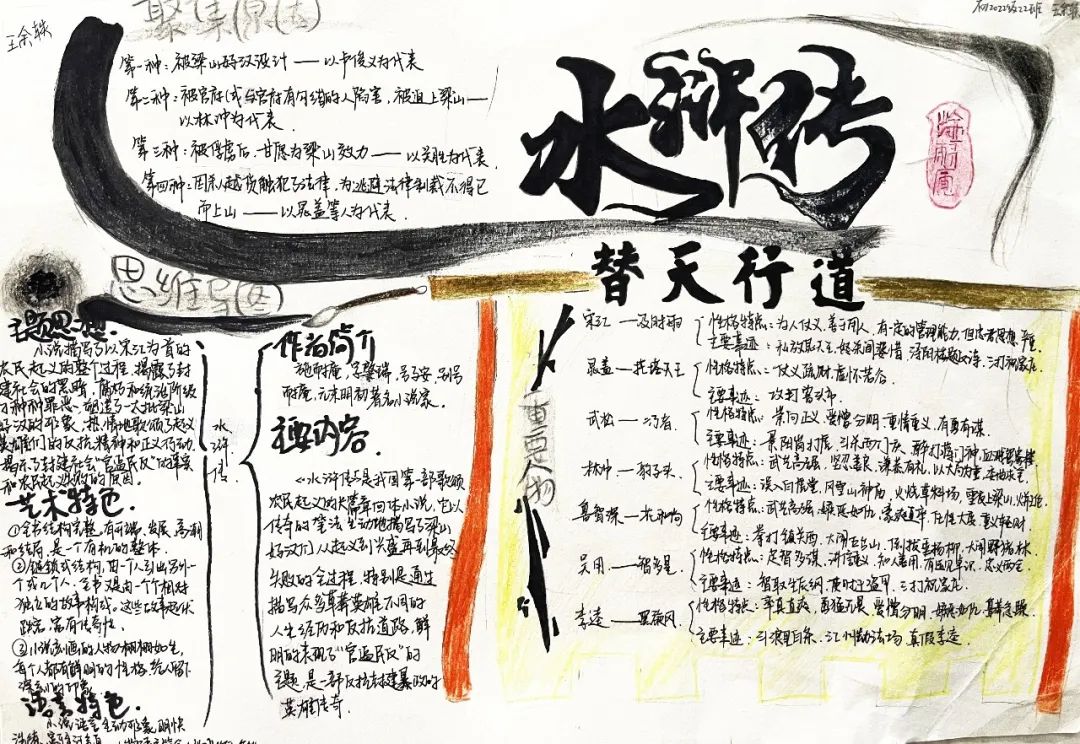 王余轶
聚集原因
初2022级22班 王余轶
第一种：被梁山好汉设计——以卢俊义为代表
第二种：被官府(或与官府有勾结的人陷害，被迫上梁山——
以林冲为代表．
第三种：被俘虏后，甘愿为梁山效力——以关胜为代表．
第四种：因杀人越货触犯了法律，为逃避法律制裁不得已
而上山——以晁盖等人为代表．
水浒传
施耐庵
替天行道
思维导图
主题思想．
小说描写了以宋江为首的
农民起义的整个过程，揭露了封
建社会的黑暗，腐朽和统治阶级
的种种罪恶，塑造了一大批梁山
好汉的形象，热情地歌颂了起义
英雄们的反抗精神和正义行动
揭示了封建社会“官逼民反”的现实
和农民起义失败的原因．
艺术特色
①全书结构完整，有开端、发展、高潮
和结局，是一个有机的整体．
②链锁式结构，由一个人引出另外一
个或几个人，全书又是由一个个相对
独立的故事构成，这些故事起伏
跌宕，富有传奇性．
③小说刻画的人物栩栩如生，
每个人都有鲜明的性格，给人留下
深刻的印象
语言特色．
小说语言生动形象，明快
水浒传
作者简介
施耐庵，字肇瑞，号子安，别号
耐庵，元末明初著名小说家．
主要内容
《水浒传》是我国第一部歌颂
农民起义的长篇章回体小说，它以
传奇的笔法，生动地描写了梁山
好汉们从起义到兴盛再到最终
失败的全过程，特别是通过
描写众多草莽英雄不同的
人生经历和反抗道路，鲜
明的表现了“官逼民反”的
主题，是一部反抗封建暴政的
英雄传奇．
重要人物
宋江——及时雨
性格特点：为人仗义，善于用人，有一定的管理能力，但忠君思想严重
主要事迹：私放晁天王，怒杀阎婆惜，浔阳楼题反诗，三打祝家庄．
晁盖——托塔天王
性格特点：仗义疏财，虚怀若谷．
主要事迹：攻打曾头市
武松——行者．
性格特点：崇尚正义，爱憎分明，重情重义，有勇有谋．
主要事迹：景阳岗打虎，斗杀西门庆，醉打蒋门神，血溅鸳鸯楼
林冲——豹子头
性格特点：武艺高强，坚忍善良，谦善有礼，以大局为重，委曲求全．
主要事迹：误入白虎堂，风雪山神庙，火烧草料场，雪夜上梁山，火并王伦
鲁智深——花和尚
性格特点：武艺高强，嫉恶如仇，豪放直率，任性大度，重义轻财．
主要事迹：拳打镇关西，大闹五台山，倒拔垂杨柳，大闹野猪林．
吴用——智多星
性格特点：足智多谋，讲信义，知人善用，有远见卓识，忠义两全．
主要事迹：智取生辰纲，使时迁盗甲，三打祝家庄．
李逵——黑旋风．
性格特点：率真直爽，勇猛无畏，爱憎分明，嫉恶如仇，鲁莽急躁．
主要事迹：斗浪里白条，江州劫法场，真假李逵